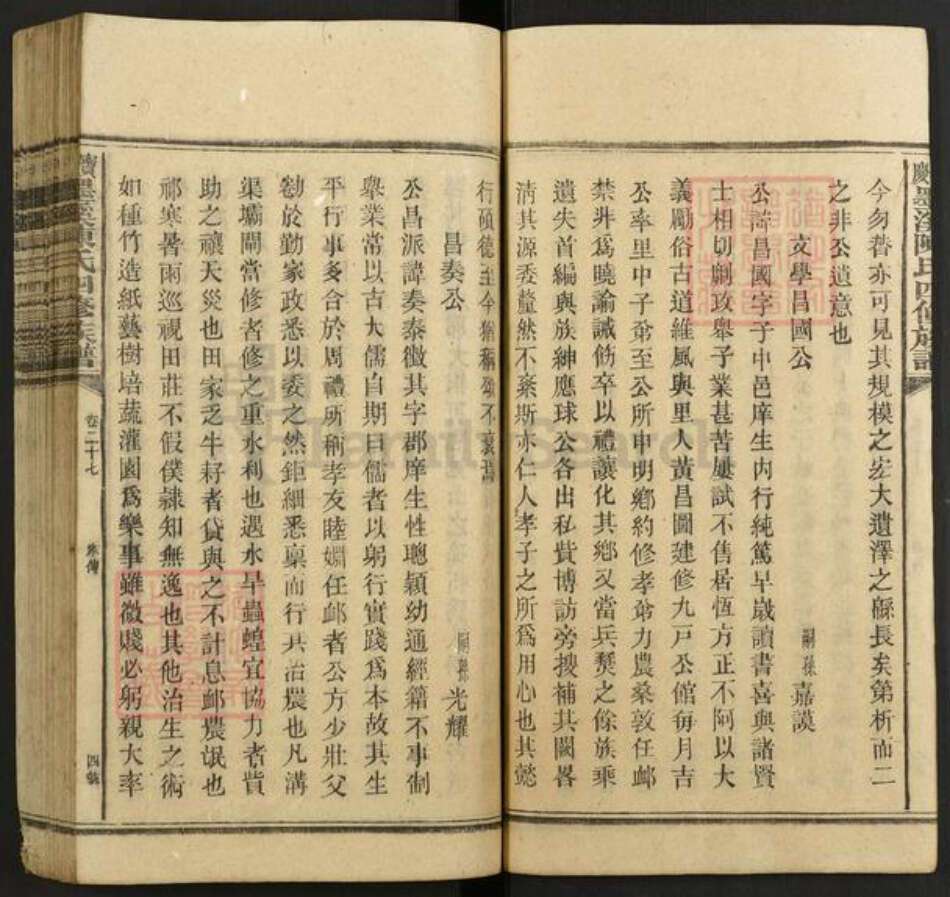 今勿替亦可見其規模之宏大遺澤之緜長矣第析而二
之非公遺意也
文學昌國公
嗣孫嘉謨
公諱昌國字子中邑庠生內行純篤早歲讀書喜與諸賢
士相切劘攻舉子業甚苦屢試不售居恆方正不阿以大
義勵俗古道維風與里人黃昌圖建修九戸公館每月吉
公率里中子弟至公所申明鄉約修孝弟力農桑敦任卹
禁非爲曉諭誡飭卒以禮讓化其鄉又當兵燹之餘族乘
遺失首編與族紳應球公各出私貲博訪旁搜補其闕畧
淸其源委釐然不紊斯亦仁人孝子之所爲用心也其懿
行碩德至今猶稱頌不衰焉
昌奏公
嗣孫光耀
公昌派諱奏泰徵其字郡庠生性聰穎幼通經籍不事制
舉業常以古大儒自期曰儒者以躬行實踐爲本故其生
平行事多合於周禮所稱孝友睦婣任卹者公方少壯父
勌於勤家政悉以委之然鉅細悉稟而行其治農也凡溝
渠壩閘當修者修之重水利也遇水旱蟲蝗宜協力者貲
助之禳天災也田家乏牛耔者貸與之不計息卹農氓也
祁寒暑雨巡視田莊不假僕隸知無逸也其他治生之術
如種竹造紙藝樹培蔬灌園爲樂事雖微賤必躬親大率
卷二十七
四號